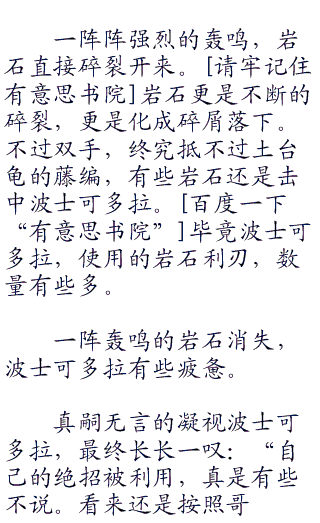 一阵阵强烈的轰鸣，岩
石直接碎裂开来。[请牢记住
有意思书院]岩石更是不断的
碎裂，更是化成碎屑落下。
不过双手，终究抵不过土台
龟的藤编，有些岩石还是击
中波士可多拉。[百度一下
“有意思书院”]毕竟波士可
多拉，使用的岩石利刃，数
量有些多。
一阵轰鸣的岩石消失，
波士可多拉有些疲惫。
真嗣无言的凝视波士可
多拉，最终长长一叹：“自
己的绝招被利用，真是有些
不说。看来还是按照哥